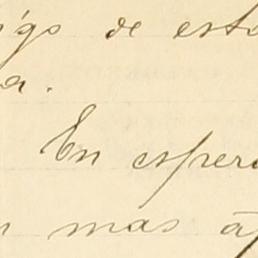 igo de esta
a.
En espera
n mas a